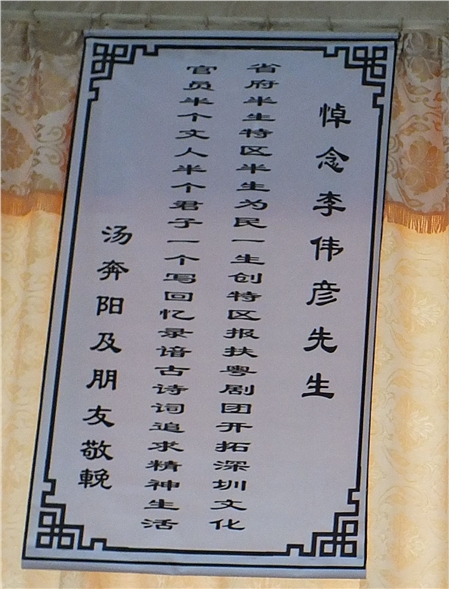 悼念李伟彦先生
省府半生特区半生为民一生创特区报扶粤剧团开拓深圳文化
官员半个文人半个君子一个写回忆录谙古诗词追求精神生活
汤奔阳及朋友敬輓